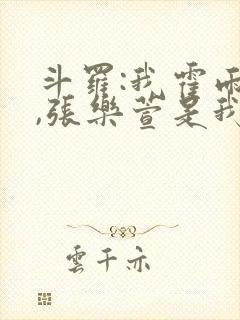 斗羅:我霍雨
,張樂萱是我
雲千亦